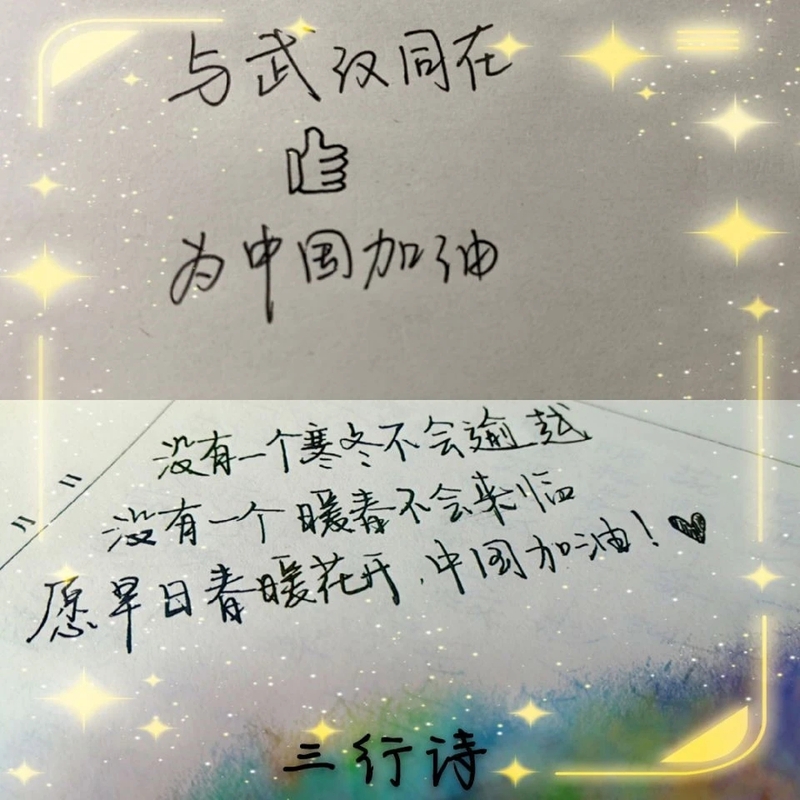 与武汉同在
为中国加油
没有一个寒冬不会逾越
没有一个暖春不会来临
愿早日春暖花开,中国加油!
三行诗